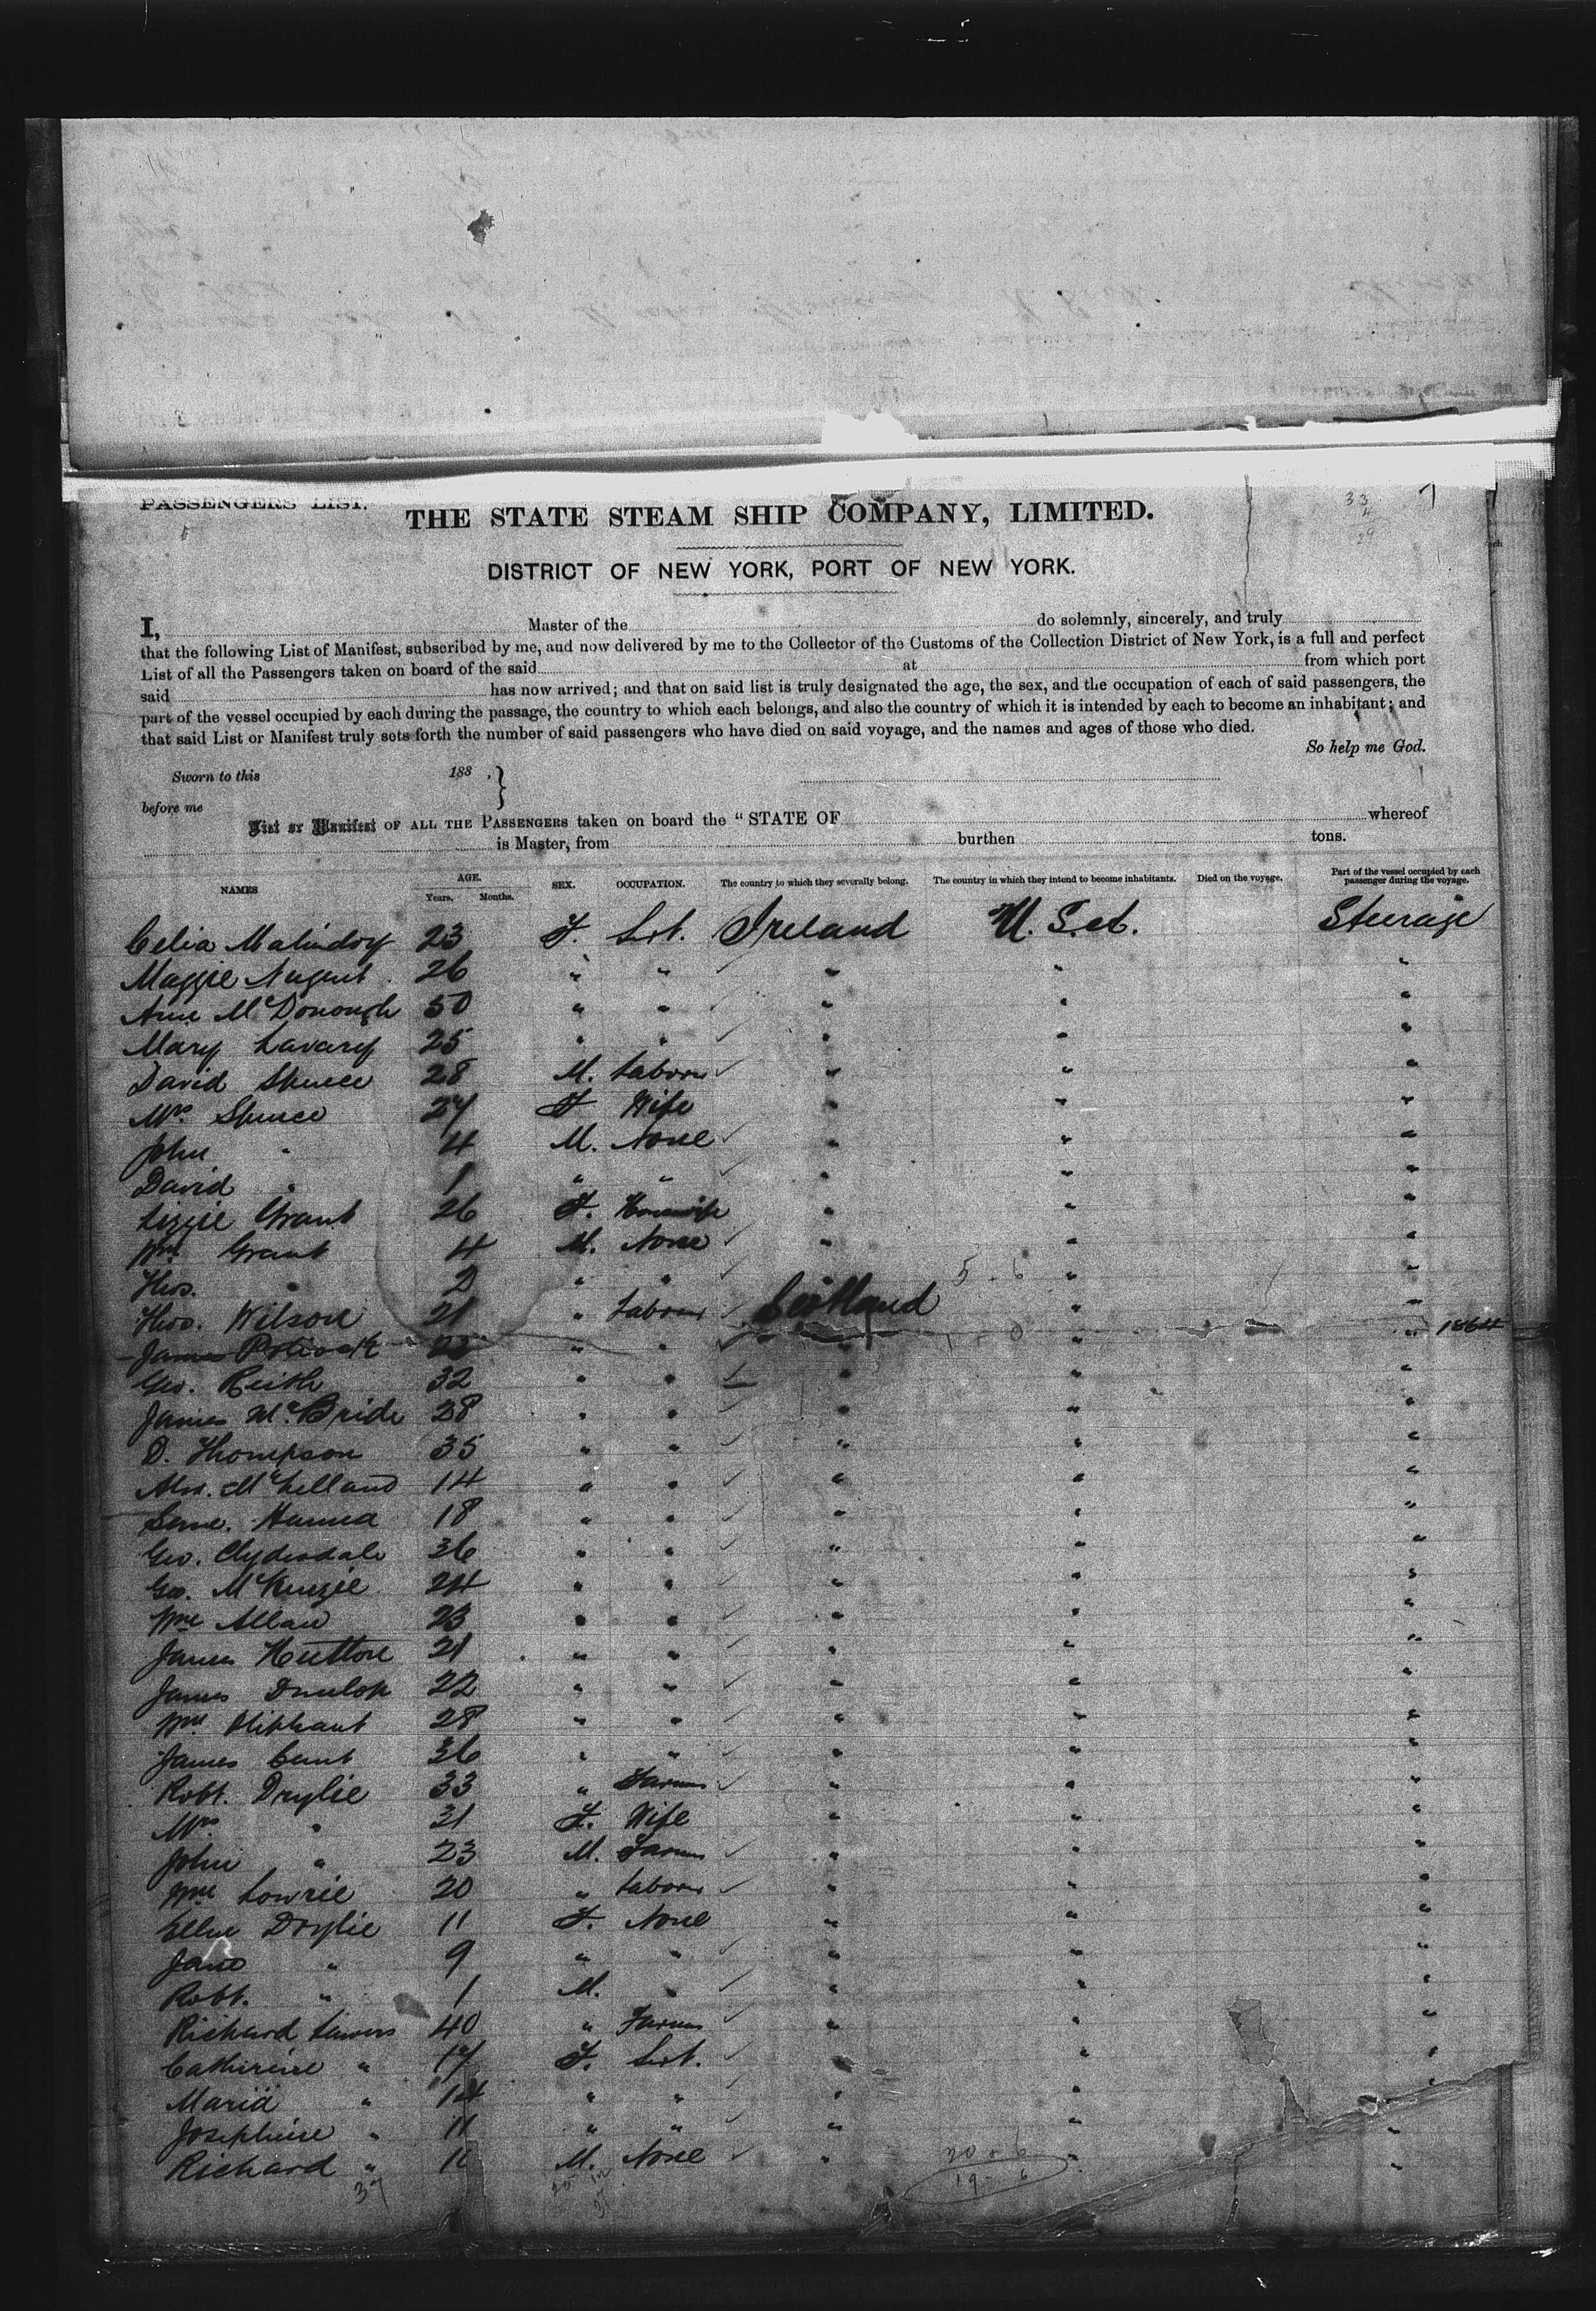 33
4
29
7
PASSENGERS LIST.
THE STATE STEAM SHIP COMPANY, LIMITED.
DISTRICT OF NEW YORK, PORT OF NEW YORK.
I, Master of the do solemnly, sincerely, and truly
that the following List of Manifest, subscribed by me, and now delivered by me to the Collector of the Customs of the Collection District of New York, is a full and perfect
List of all the Passengers taken on board of the said at from which port
said has now arrived; and that on said list is truly designated the age, the sex, and the occupation of each of said passengers, the
part of the vessel occupied by each during the passage, the country to which each belongs, and also the country of which it is intended by each to become an inhabitant; and
that said List or Manifest truly sets forth the number of said passengers who have died on said voyage, and the names and ages of those who died.
So help me God.
Sworn to this 188 ,}
before me
List or Manifest OF ALL THE PASSENGERS taken on board the "STATE OF whereof
is Master, from burthen tons.
NAMES AGE. Years. Months. SEX. OCCUPATION. The country to which they severally belong. The country in which they intend to become inhabitants. Died on the voyage. Part of the vessel occupied by each passenger during the voyage.
Celia 23 F. Ireland U. S. A. Steerage
Maggie Nugent 26 " " " " "
Ann McDonough 50 " " " " "
Mary Lavary 25 " " " " "
David Spence 28 M. Labour " " "
Mrs Spence 27 F Wife " " "
John " 4 M. None " " "
David " 1 " " " " "
Lizzie Grant 26 F. Housewife " " "
Wm Grant 4 M. None " " "
Thos. " 2 " " " "
Thos. Wilson 21 " Labour Scotland " "
James Pollock 23 " " " " " 1864
Geo. Keith 32 " " " " "
James McBride 28 " " " " "
D. Thompson 35 " " " " "
Alex. McLelland 14 " " " " "
Hanna 18 " " " " "
Geo. Clydesdale 36 " " " " "
Geo. McKenzie 24 " " " " "
Wm Allan 23 " " " " "
James Hutton 21 " " " " "
James Dunlop 22 " " " " "
Wm Oliphant 28 " " " " "
James 36 " " " " "
Robt. Drylie 33 " Farmer " " "
Mrs " 31 F. Wife " " "
John " 23 M. Farmer " " "
Wm Lowrie 20 " Labour " " "
Ellen Drylie 11 F. None " " "
Jane " 9 " " " " "
Robt. " 1 M. " " " "
Richard 40 " Farmer " " "
Catherine " 17 F. " " "
Maria " 14 " " " " "
Josephine " 11 " " " " "
Richard " M. None " " "
37
20 - 6
19 - 6